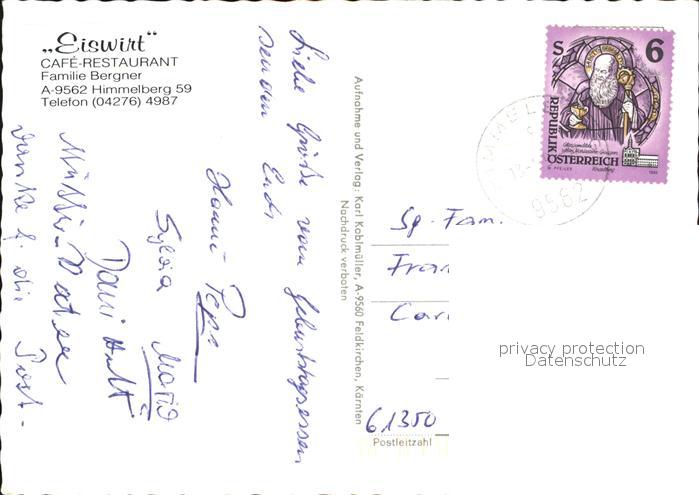 „Eiswirt“
CAFÉ-RESTAURANT
Familie Bergner
A-9562 Himmelberg 59
Telefon (04276) 4987
Liebe Grüße vom Geburtstagsessen
senden Euch
Hanni Pepi
Sylvia Mario
Mutti Vater
Danke f. die Post-
Aufnahme und Verlag: Karl Kablmüller, A-9560 Feldkirchen, Kärnten
Nachdruck verboten
S 6
REPUBLIK
ÖSTERREICH
9562
Sg. Fam.
Fran
Car
61350
Postleitzahl
privacy protection
Datenschutz